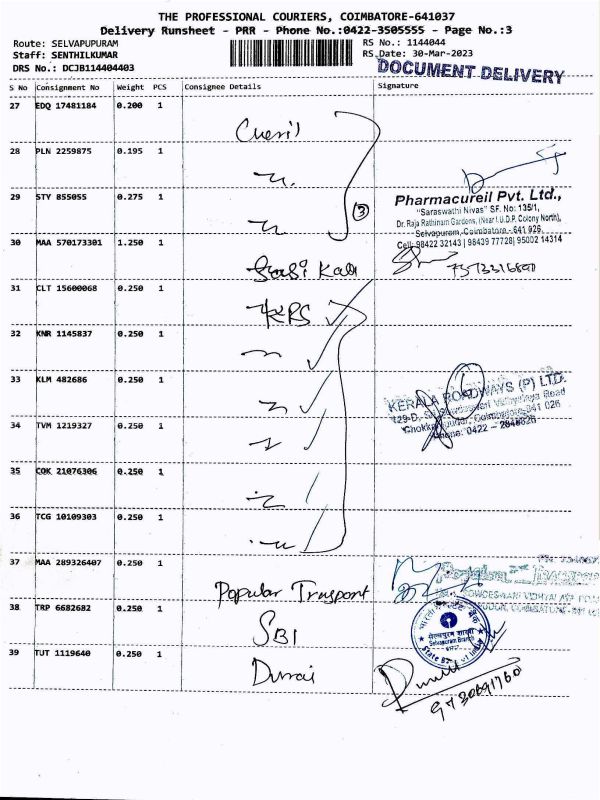 THE PROFESSIONAL COURIERS, COIMBATORE-641037
Delivery Runsheet - PRR - Phone No.:0422-3505555 - Page No.:3
Route: SELVAPUPURAM
RS No.: 1144044
Staff: SENTHILKUMAR
RS.Date: 30-Mar-2023
DRS No.: DCJB114404403
DOCUMENT DELIVERY
S No Consignment No Weight PCS Consignee Details Signature
27 EDQ 17481184 0.200 1
28 PLN 2259875 0.195 1
29 STY 855055 0.275 1
3
Pharmacureil Pvt. Ltd.,
"Saraswathi Nivas" SF. No: 135/1,
Dr. Raja Rathinam Gardens, (Near I.U.D.P. Colony North),
Selvapuram, Coimbatore - 641 026.
Cell: 98422 32143 | 98439 77728| 95002 14314
30 MAA 570173301 1.250 1
31 CLT 15600068 0.250 1
KRS
32 KNR 1145837 0.250 1
33 KLM 482686 0.250 1
KERALA ROADWAYS (P) LTD.
34 TVM 1219327 0.250 1
35 COK 21076306 0.250 1
36 TCG 10109303 0.250 1
37 MAA 289326407 0.250 1 Popular Transport
38 TRP 6682682 0.250 1 SBI
Selvapuram Branch
39 TUT 1119640 0.250 1 Durai